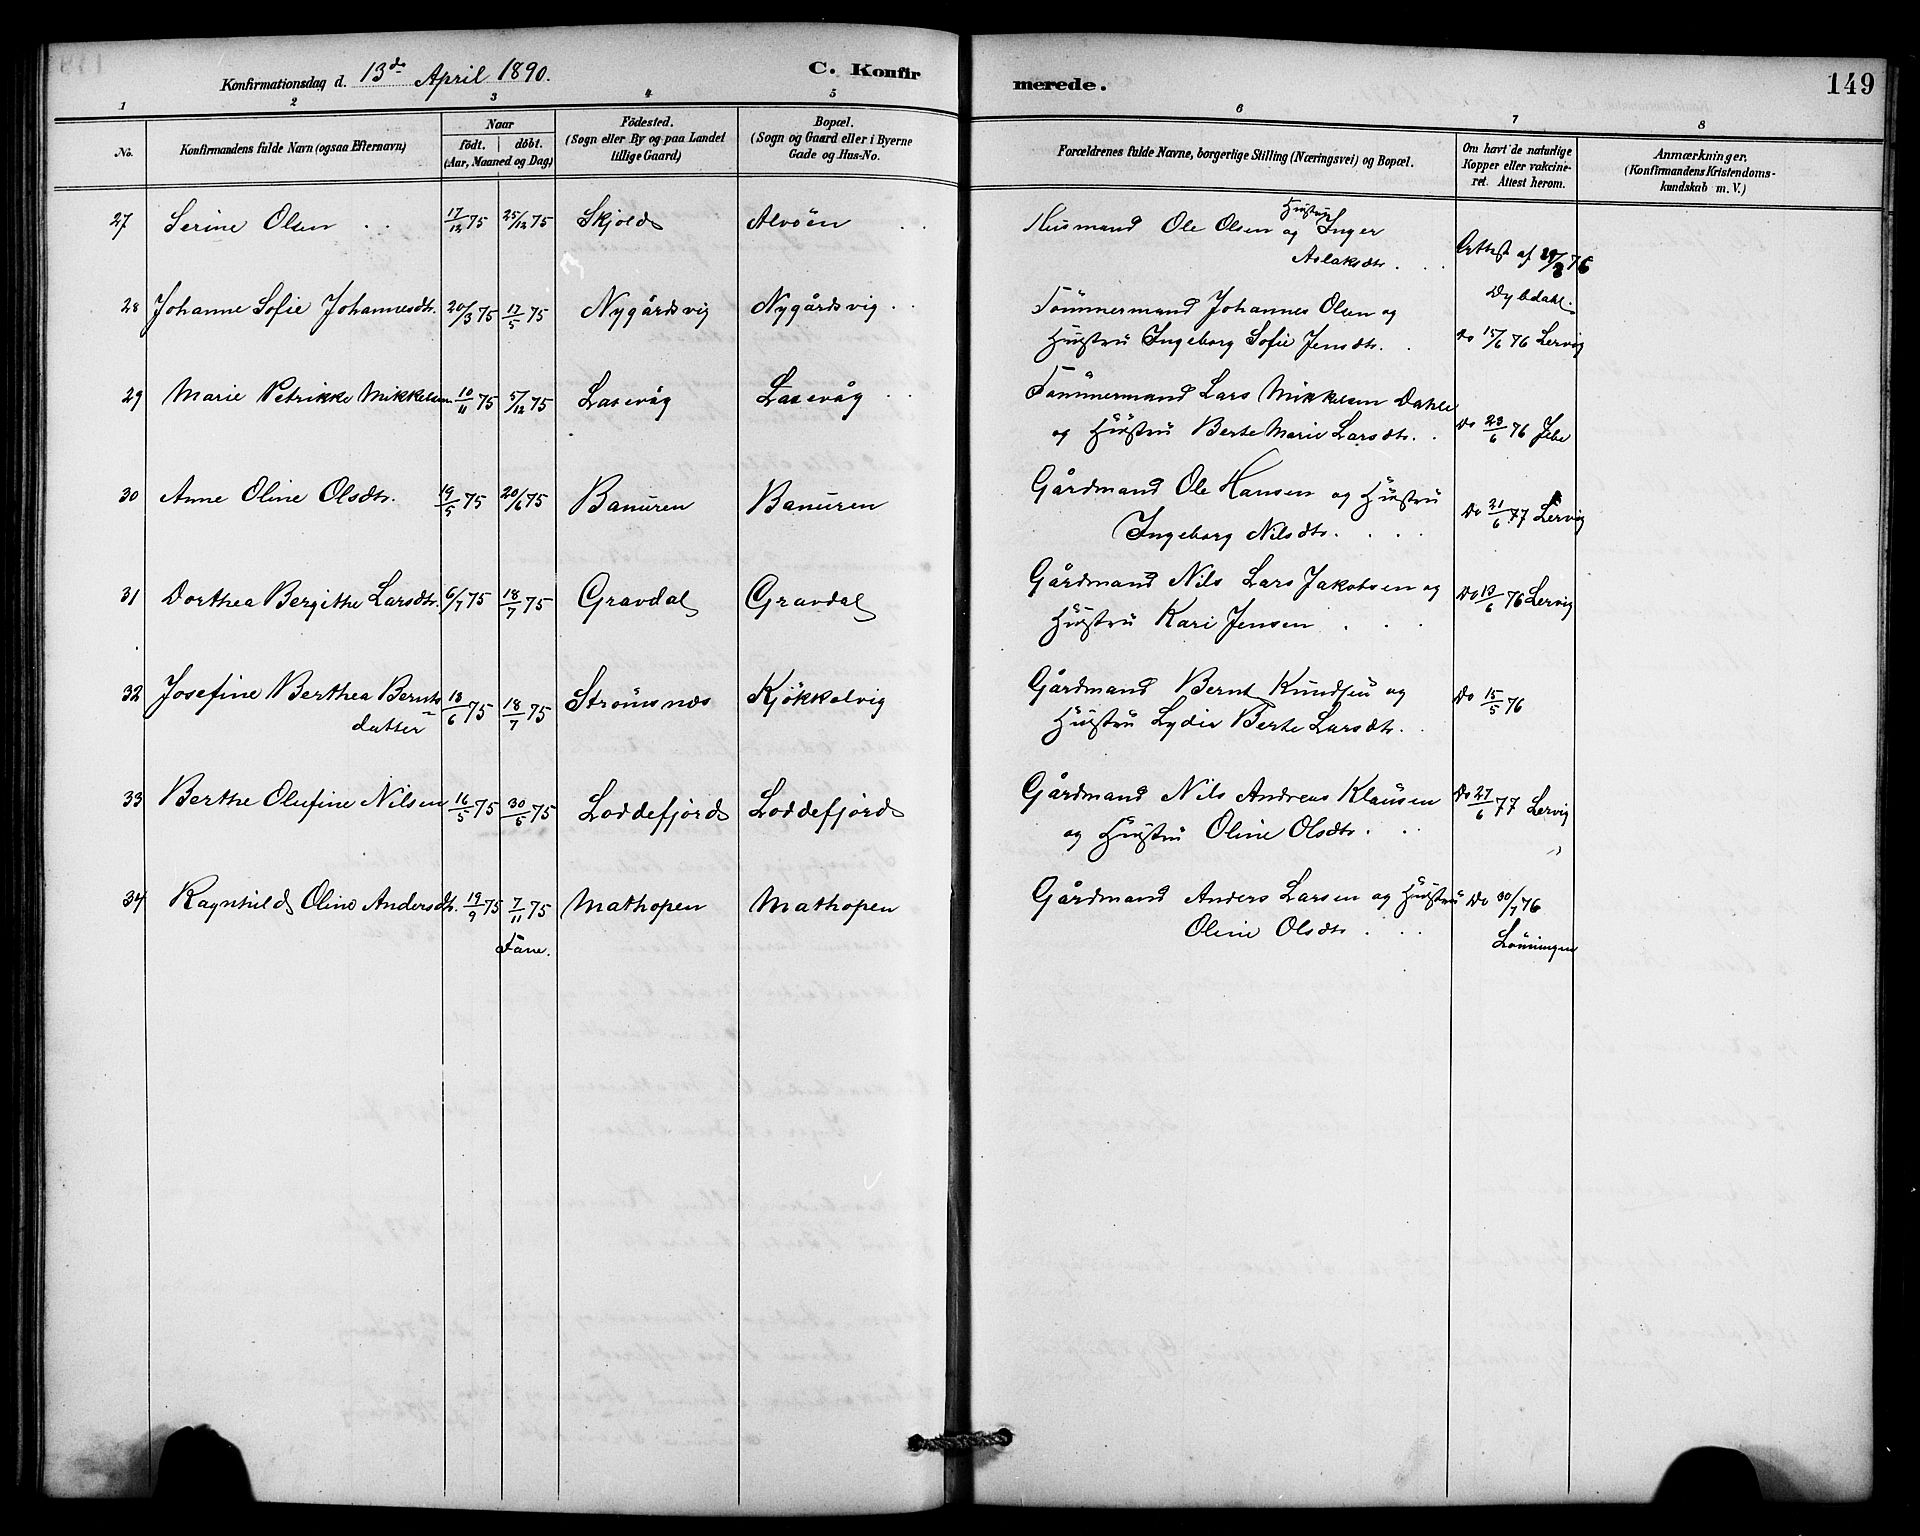 Konfirmationsdag d. 13de April 1890.
C. Konfirmerede.
149
1 2 3 4 5 6 7 8
No.
Konfirmandens fulde Navn (ogsaa Efternavn)
Naar
födt. döbt.
(Aar, Maaned og Dag)
Födested.
(Sogn eller By og paa Landet
tillige Gaard)
Bopæl.
(Sogn og Gaard eller i Byerne
Gade og Hus-No.
Forældrenes fulde Navne, borgerlige Stilling (Næringsvei) og Bopæl.
Om havt de naturlige
Kopper eller vakcine-
ret. Attest herom.
Anmærkninger.
(Konfirmandens Kristendoms-
kundskab m. V.)
27 Serine Olsen 17/12 75 25/12 75 Skjold Alvöen Husmand Ole Olsen og Hustru Inger
Aslaksdtr. Attest af 29/3 76
Dybdahl.
28 Johanne Sofie Johannesdtr. 20/3 75 17/5 75 Nygårdsvig Nygårdsvig Tömmermand Johannes Olsen og
Hustru Ingeborg Sofie Jensdtr. Do 15/6 76 Lervig
29 Marie Petrikke Mikkelsen 10/11 75 5/12 75 Laxevåg Laxevåg Tömmermand Lars Mikkelsen Dahle
og Hustru Berte Marie Larsdtr. Do 23/6 76 Jebe
30 Anne Oline Olsdtr. 19/5 75 20/6 75 Banuren Banuren Gårdmand Ole Hansen og Hustru
Ingeborg Nilsdtr. Do 21/6 77 Lervig
31 Dorthea Bergithe Larsdtr. 6/7 75 18/7 75 Gravdal Gravdal Gårdmand Nils Lars Jakobsen og
Hustru Kari Jensen Do 13/6 76 Lervig
32 Josefine Berthea Bernts
datter 13/6 75 18/7 75 Strömsnæs Kjökkelvig Gårdmand Bernt Knudsen og
Hustru Lydie Berte Larsdtr. Do 15/5 76
33 Berthe Olufine Nilsen 16/5 75 30/6 75 Loddefjord Loddefjord Gårdmand Nils Andreas Klausen
og Hustru Oline Olsdtr. Do 27/6 77 Lervig
34 Ragnhild Oline Andersdtr. 19/9 75 7/11 75 Mathopen Mathopen Gårdmand Anders Larsen og Hustru
Fane. Oline Olsdtr. Do 30/7 76
Lönningen